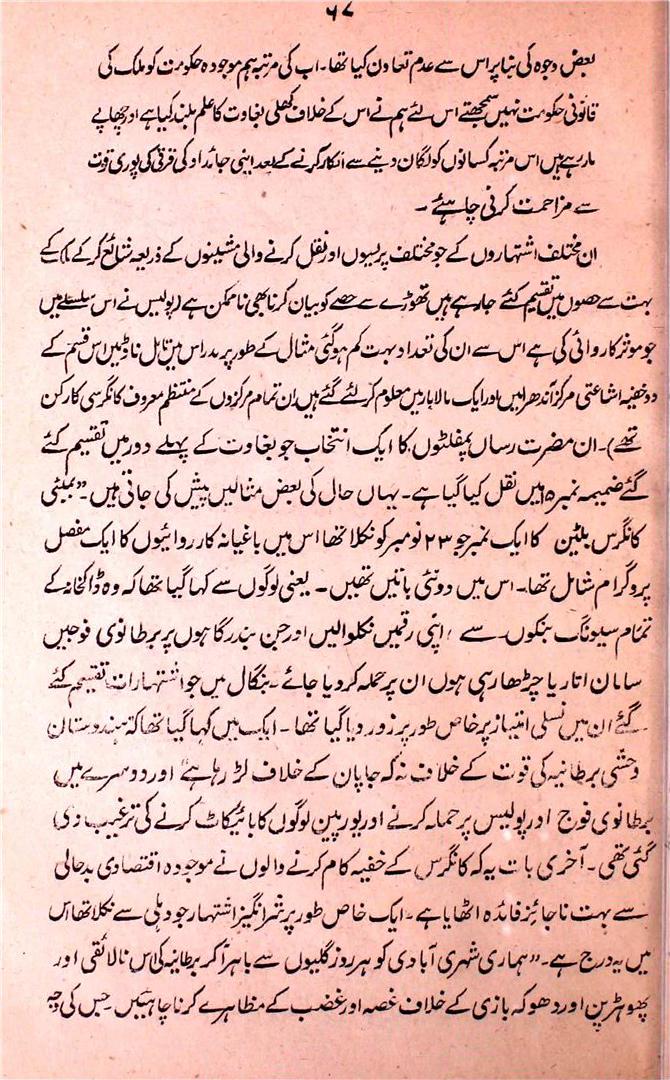 ۶۷
بعض وجوہ کی بنا پر اس سے عدم تعاون کیا تھا۔ اب کی مرتبہ ہم موجودہ حکومت کو ملک کی
قانونی حکومت نہیں سمجھتے اس لئے ہم نے اس کے خلاف کھلی بغاوت کا علم بلند کیا ہے اور چھاپے
مار رہے ہیں اس مرتبہ کسانوں کو لگان دینے سے انکار کرنے کے بعد اپنی جائداد کی قرقی کی پوری قوت
سے مزاحمت کرنی چاہئے ۔
ان مختلف اشتہاروں کے جو مختلف پریسوں اور نقل کرنے والی مشینوں کے ذریعہ شائع کرکے ملک کے
بہت سے حصوں میں تقسیم کئے جا رہے ہیں تھوڑے سے حصے کو بیان کرنا بھی ناممکن ہے (پولیس نے اس سلسلے میں
جو موثر کاروائی کی ہے اس سے ان کی تعداد بہت کم ہوگئی مثال کے طور پر مدراس میں تامل ناڈ میں اس قسم کے
دو خفیہ اشاعتی مرکز آندھرا میں اور ایک مالابار میں معلوم کر لئے گئے ہیں ان تمام مرکزوں کے منتظم معروف کانگرسی کارکن
تھے)۔ ان مضرت رساں پمفلٹوں کا ایک انتخاب جو بغاوت کے پہلے دور میں تقسیم کئے
گئے ضمیمہ نمبر ۱۵ میں نقل کیا گیا ہے۔ یہاں حال کی بعض مثالیں پیش کی جاتی ہیں۔ "بمبئی
کانگرس بلٹین کا ایک نمبر جو ۲۳ نومبر کو نکلا تھا اس میں باغیانہ کارروائیوں کا ایک مفصل
پروگرام شامل تھا۔ اس میں دو نئی باتیں تھیں۔ یعنی لوگوں سے کہا گیا تھا کہ وہ ڈاکخانہ کے
تمام سیونگ بنکوں سے اپنی رقمیں نکلوالیں اور جن بندرگاہوں پر برطانوی فوجیں
سامان اتار یا چڑھا رہی ہوں ان پر حملہ کر دیا جائے۔ بنگال میں جو اشتہارات تقسیم کئے
گئے ان میں نسلی امتیاز پر خاص طور پر زور دیا گیا تھا۔ ایک میں کہا گیا تھا کہ ہندوستان
وحشی برطانیہ کی قوت کے خلاف نہ کہ جاپان کے خلاف لڑ رہا ہے" اور دوسرے میں
برطانوی فوج اور پولیس پر حملہ کرنے اور یورپین لوگوں کا بائیکاٹ کرنے کی ترغیب دی
گئی تھی۔ آخری بات یہ کہ کانگرس کے خفیہ کام کرنے والوں نے موجودہ اقتصادی بدحالی
سے بہت ناجائز فائدہ اٹھایا ہے۔ ایک خاص طور پر شرانگیز اشتہار جو دہلی سے نکلا تھا اس
میں یہ درج ہے۔ "ہماری شہری آبادی کو ہر روز گلیوں سے باہر آ کر برطانیہ کی اس نالائقی اور
پھوہڑپن اور دھوکہ بازی کے خلاف غصہ اور غضب کے مظاہرے کرنا چاہئیں۔ جس کی وجہ